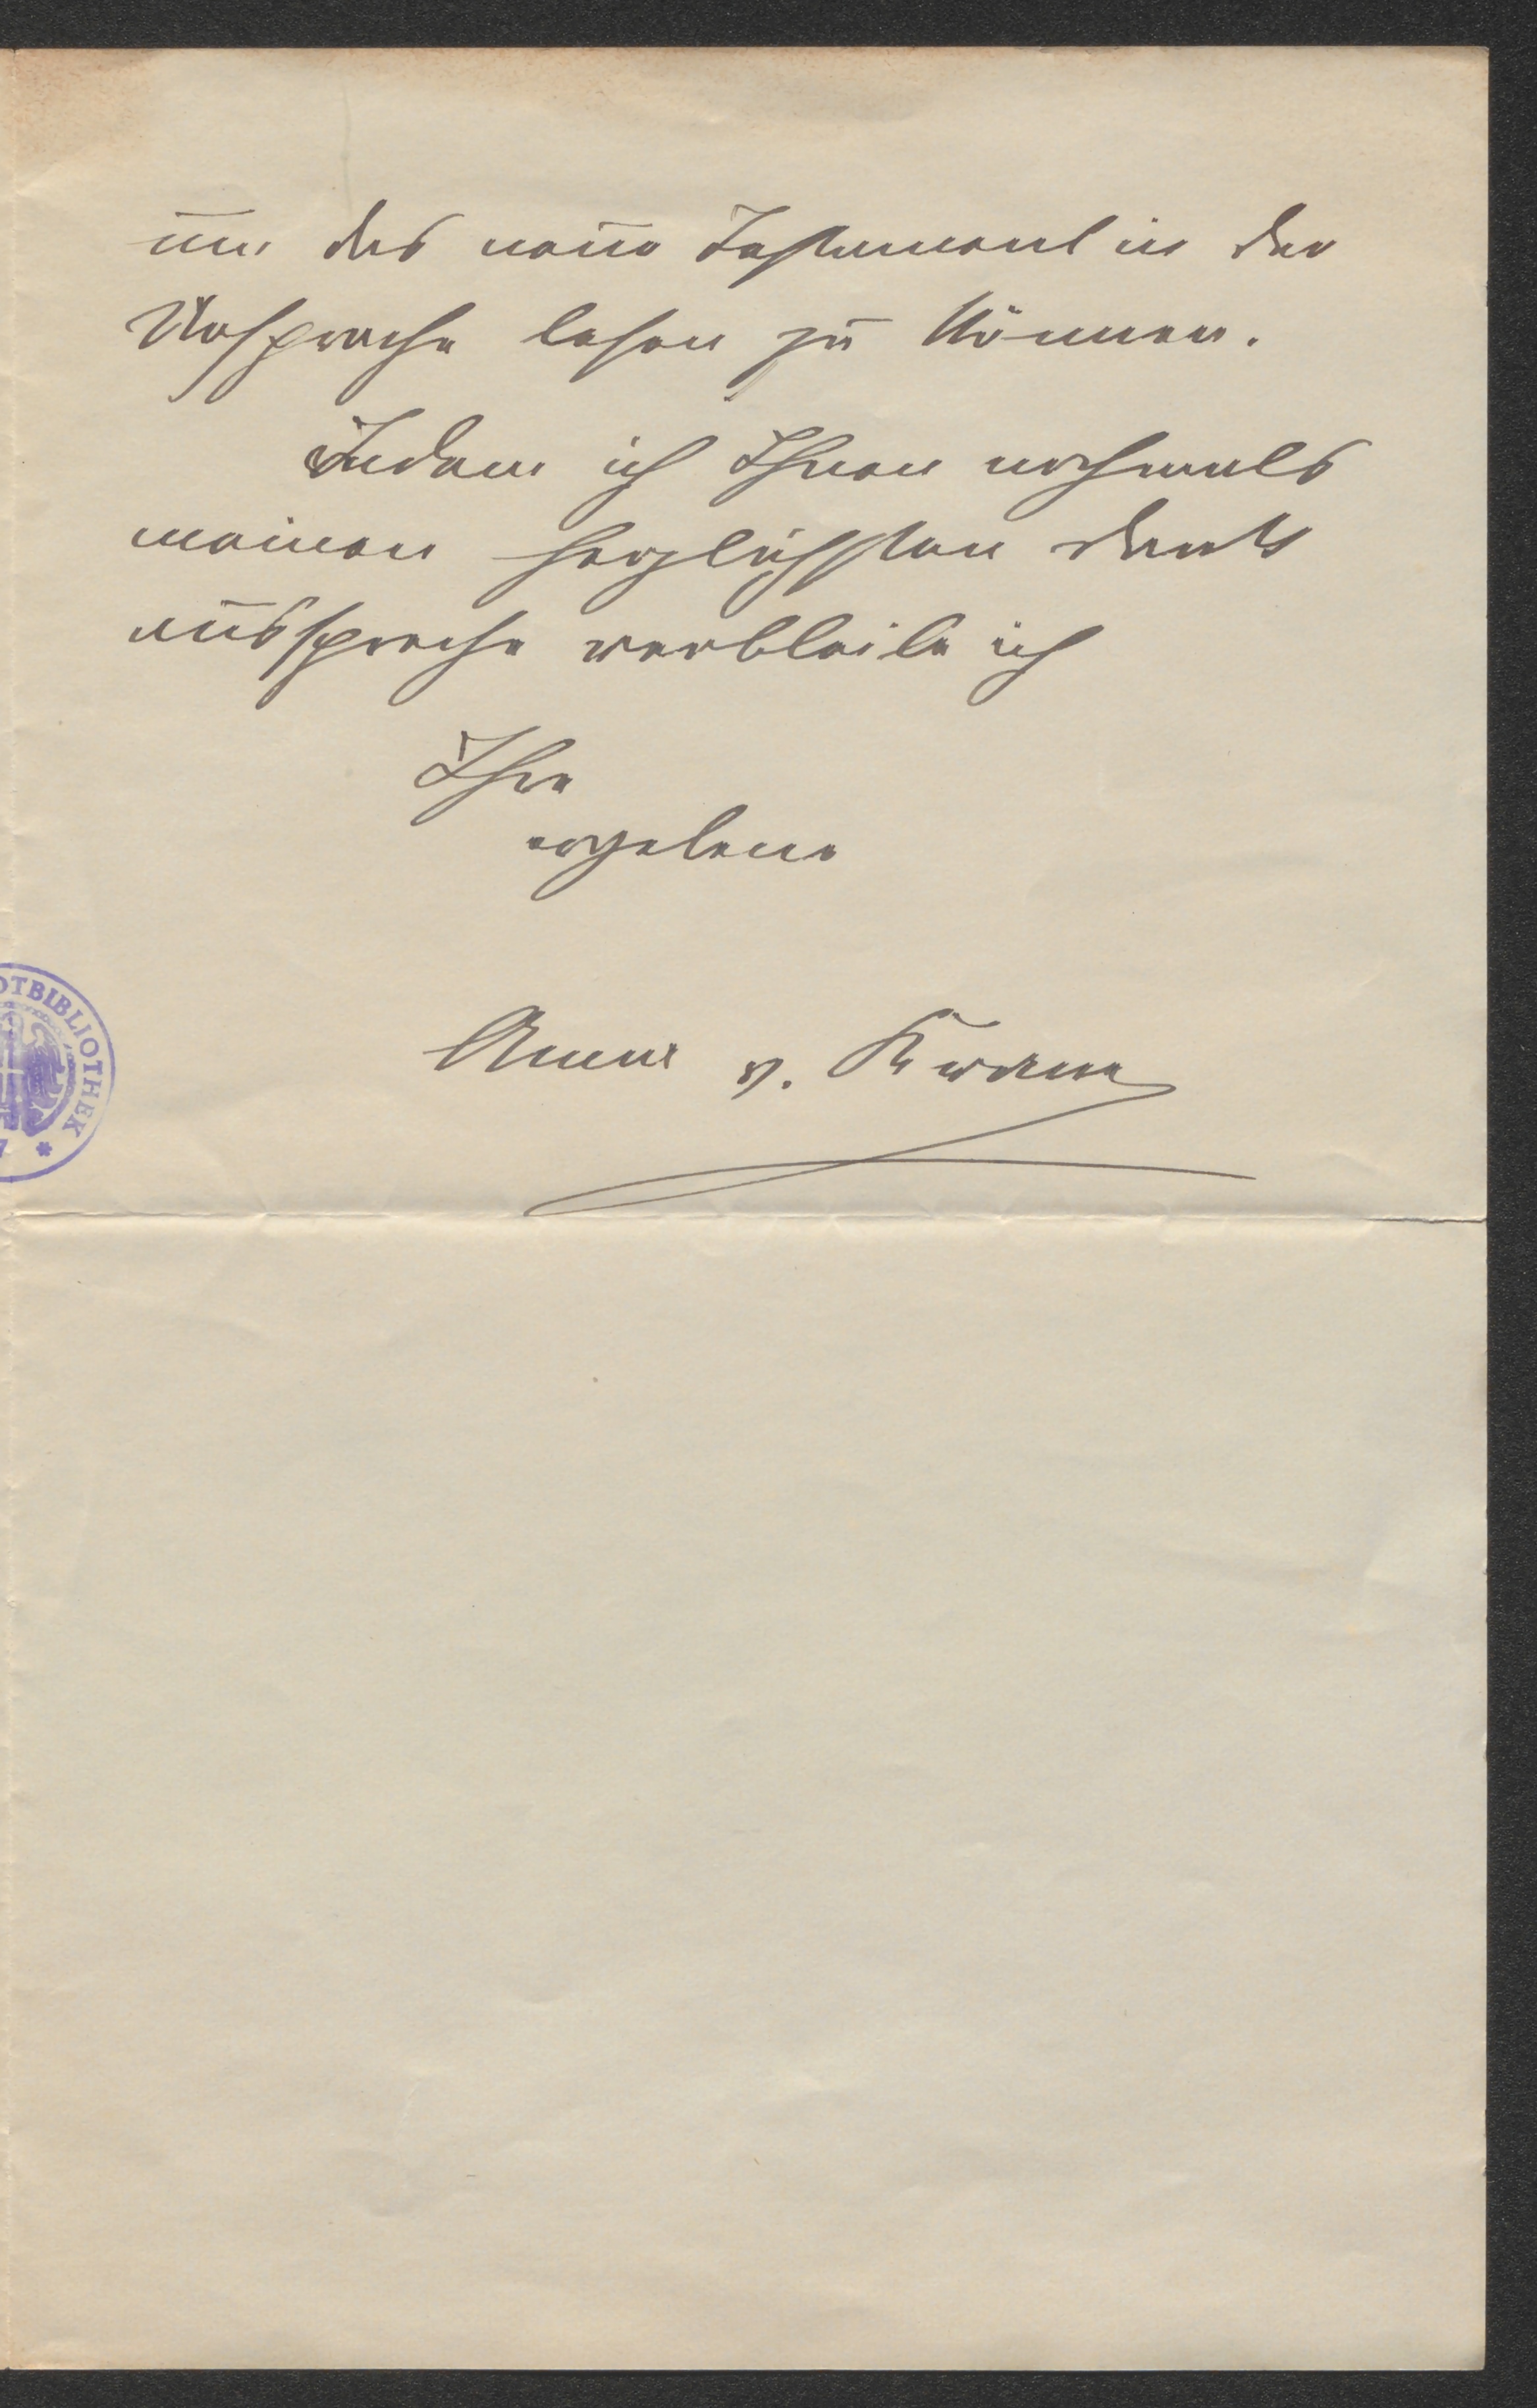 um das neue Testament in der
Ursprache lesen zu können.
Indem ich Ihnen nochmals
meinen herzlichsten Dank
ausspreche verbleibe ich
Ihre
ergebene
Anna v.
DTBIBLIOTHEK
7 *